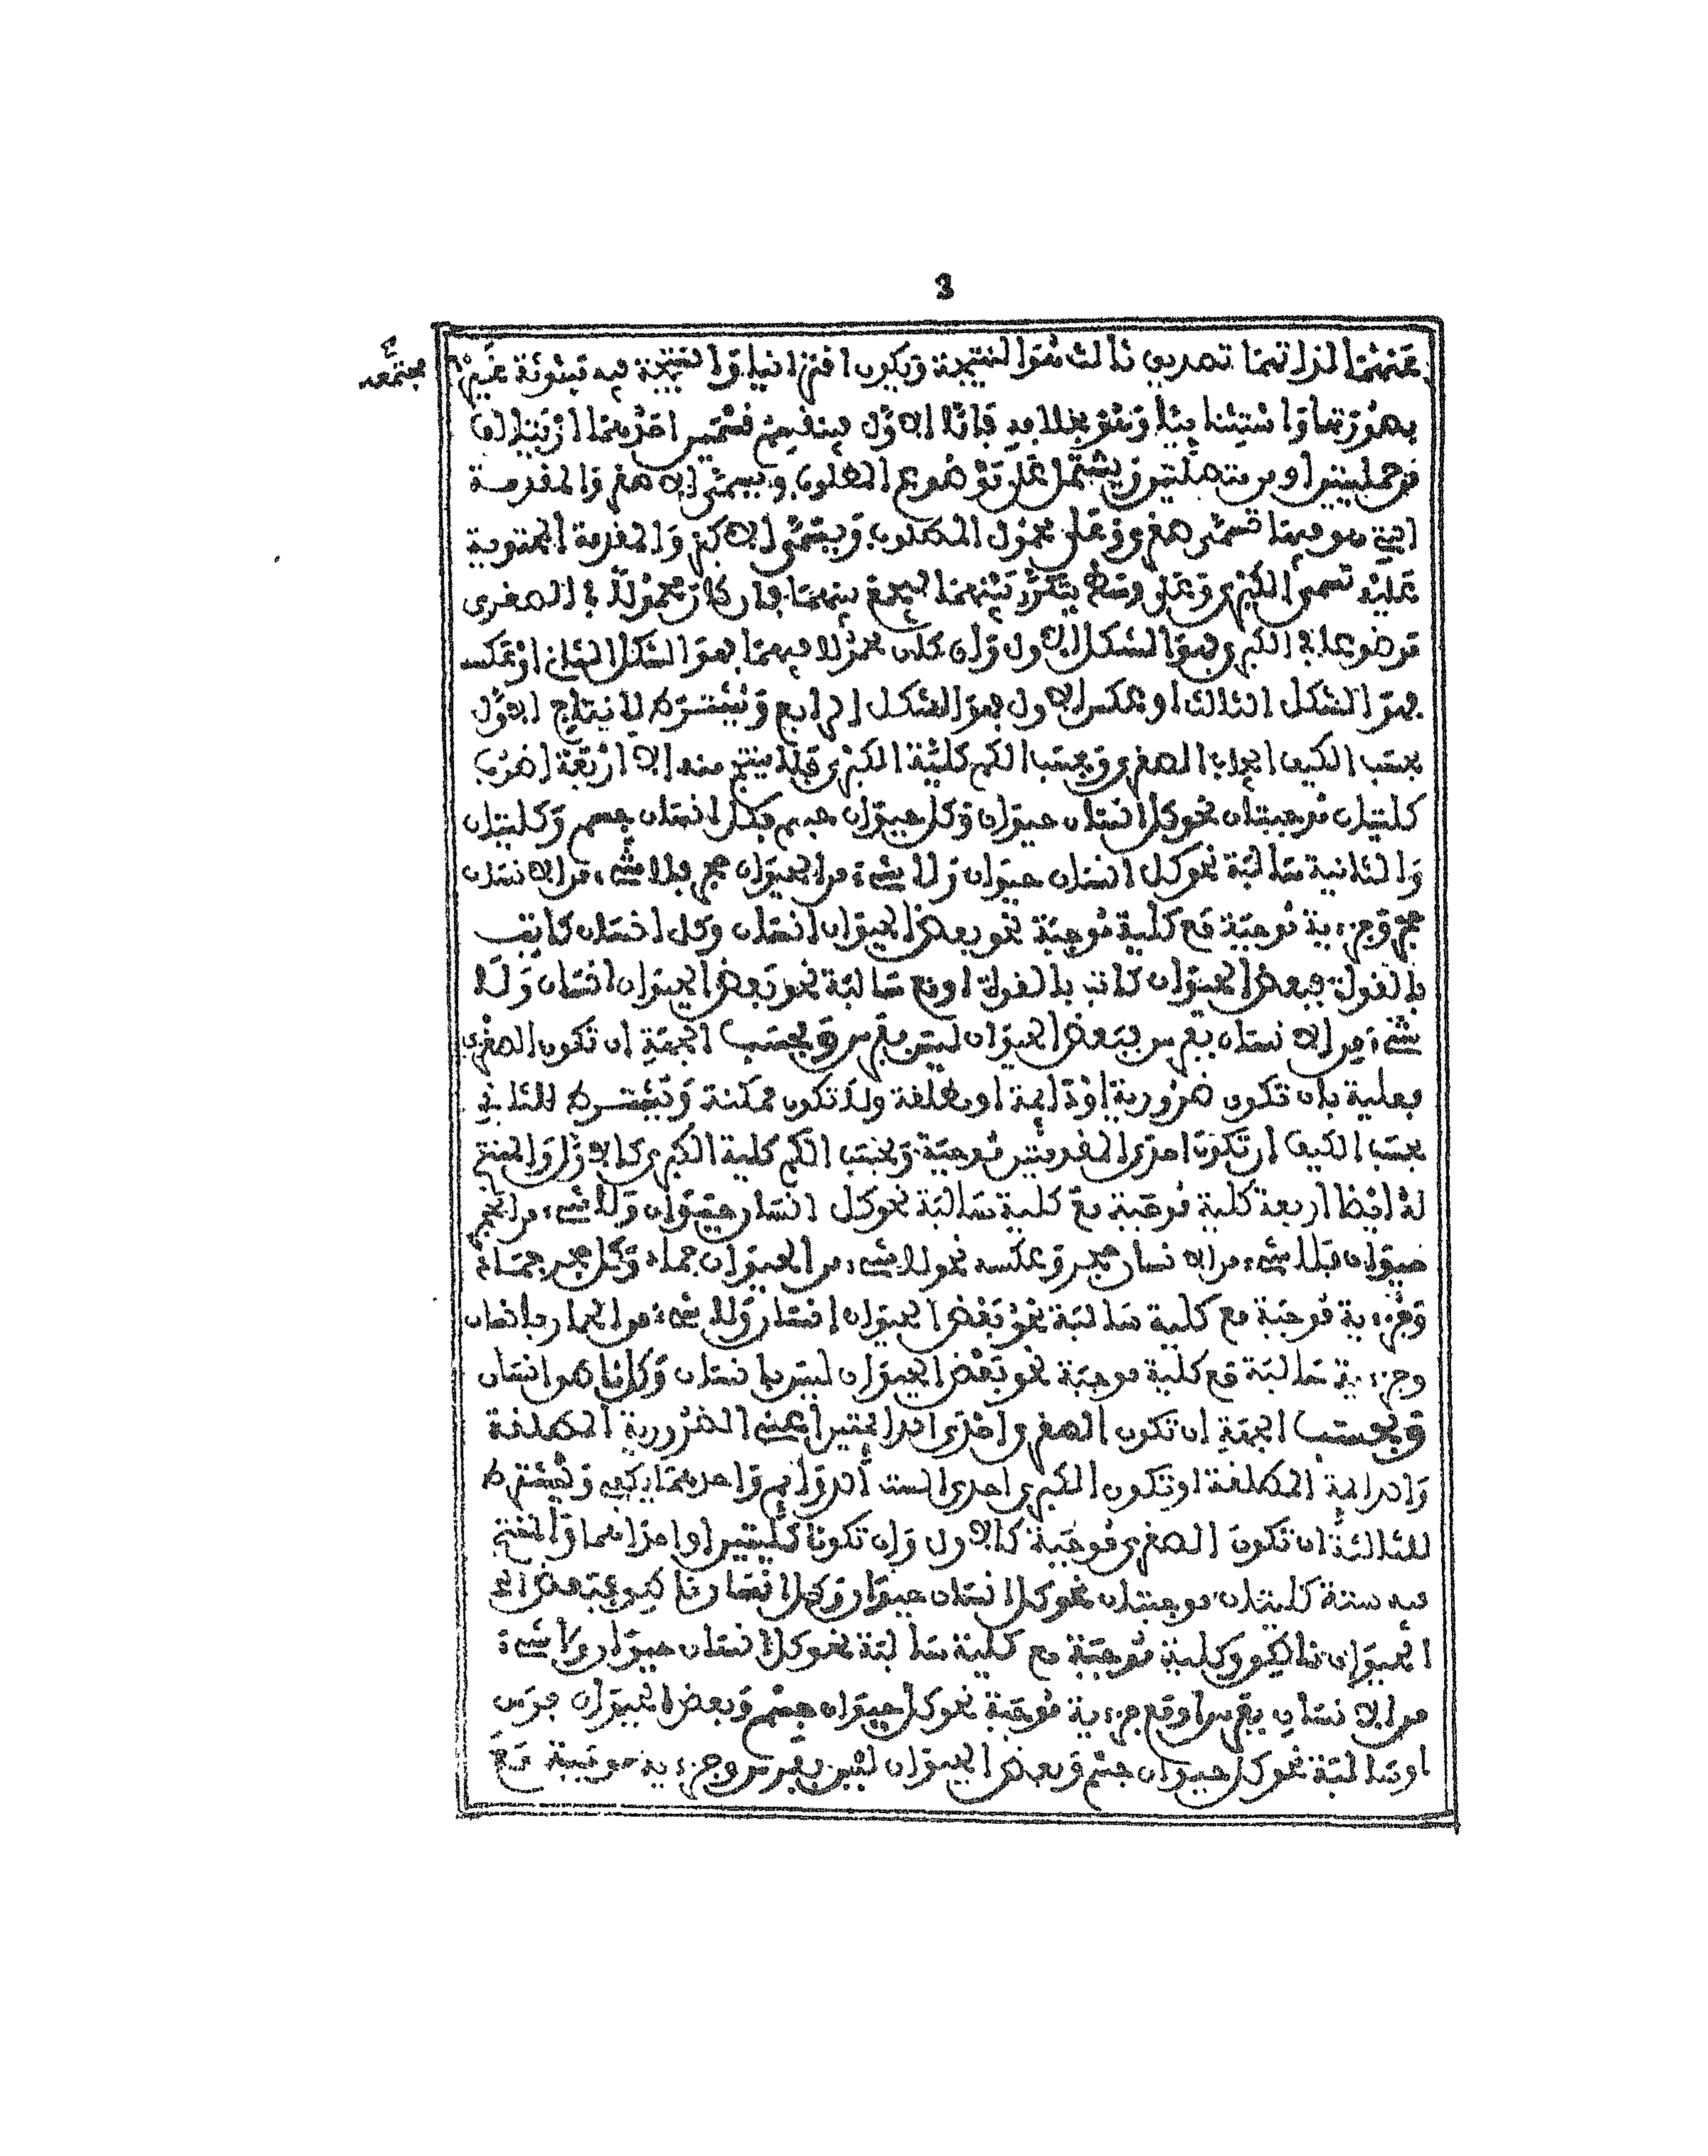 3
عنهما لذاتهما تصديق ثالث هو النتيجة ويكون اقترانيا والنتيجة فيه مبثوثة غير
مجتمعة
بصورتها واستثنائيا وهو بخلافه فاما الاول فينقسم قسمين احدهما
من حمليتين او من متصلتين ويشتمل على موضوع المطلوب ويسمى الاصغر والمقدمة
التي هو فيها تسمى صغرى وعلى محمول المطلوب ويسمى الاكبر والمقدمة المحتوية
عليه تسمى الكبرى وعلى وسط يتكرر بينهما ليجمع بينهما فان كان محمولا في الصغرى
موضوعا في الكبرى فهو الشكل الاول وان كان محمولا فيهما فهو الشكل الثاني او عكسه
فهو الشكل الثالث او عكس الاول فهو الشكل الرابع ويشترط لانتاج الاول
بحسب الكيف ايجاب الصغرى وبحسب الكم كلية الكبرى فلا ينتج منه الا اربعة اضرب
كليتان موجبتان نحو كل انسان حيوان وكل حيوان جسم فكل انسان جسم وكليتان
والثانية سالبة نحو كل انسان حيوان ولا شيء من الحيوان حجر فلا شيء من الانسان
حجر وجزءية موجبة مع كلية موجبة نحو بعض الحيوان انسان وكل انسان كاتب
بالقوة فبعض الحيوان كاتب بالقوة او مع سالبة نحو بعض الحيوان انسان ولا
شيء من الانسان بفرس فبعض الحيوان ليس بفرس وبحسب الجهة ان تكون الصغرى
فعلية بان تكون ضرورية او دايمة او مطلقة ولا تكون ممكنة ويشترط للثاني
بحسب الكيف ان تكون احدى المقدمتين موجبة وبحسب الكم كلية الكبرى كالاول والمنتج
له ايضا اربعة كلية موجبة مع كلية سالبة نحو كل انسان حيوان ولا شيء من الحجر
حيوان فلا شيء من الانسان حجر وعكسه نحو لا شيء من الحيوان جماد وكل حجر جماد
وجزءية موجبة مع كلية سالبة نحو بعض الحيوان انسان ولا شيء من الحمار بانسان
وجزءية سالبة مع كلية موجبة نحو بعض الحيوان ليس بانسان وكل انسان
وبحسب الجهة ان تكون الصغرى احدى الدايمتين اعني الضرورية المطلقة
والدايمة المطلقة او تكون الكبرى احدى الست الدوايم واحدهما يكفي ويشترط
للثالثة ان تكون الصغرى موجبة كالاول وان تكونا كليتين او احداهما والمنتج
منه ستة كليتان موجبتان نحو كل انسان حيوان وكل انسان ناطق فبعض
الحيوان ناطق وكلية موجبة مع كلية سالبة نحو كل انسان حيوان ولا شيء
من الانسان بفرس او مع جزءية موجبة نحو كل حيوان جسم وبعض الحيوان فرس
او سالبة نحو كل حيوان جسم وبعض الحيوان ليس بفرس وجزءية موجبة مع